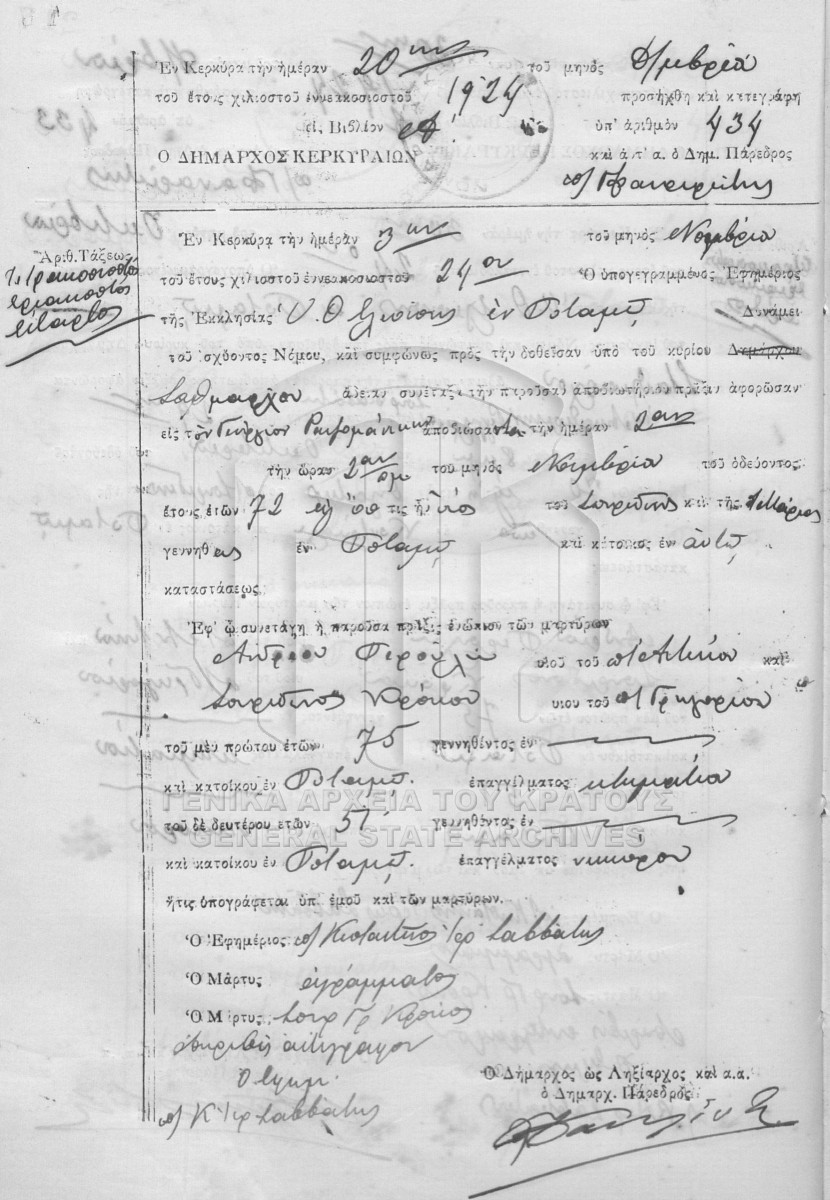 Ἐν Κερκύρᾳ τὴν ἡμέραν 20ην τοῦ μηνὸς
τοῦ ἔτους χιλιοστοῦ ἐννεακοσιοστοῦ 1924 προσήχθη καὶ κατεγράφη
εἰς Βιβλίον ὑπ' ἀριθμὸν 434
Ο ΔΗΜΑΡΧΟΣ ΚΕΡΚΥΡΑΙΩΝ καὶ ἀντ' α. ὁ Δημ. Πάρεδρος
Ἐν Κερκύρᾳ τὴν ἡμέραν 3ην τοῦ μηνὸς Νοεμβρίου
Ἀριθ. Τάξεως
Τετρακοσιοστὸν
τριακοστὸν
τέταρτον
τοῦ ἔτους χιλιοστοῦ ἐννεακοσιοστοῦ 24ου Ὁ ὑπογεγραμμένος Ἐφημέριος
τῆς Ἐκκλησίας Ὑ. Θ. Ἐλεούσης ἐν Ποταμῷ Δυνάμει
τοῦ ἰσχύοντος Νόμου, καὶ συμφώνως πρὸς τὴν δοθεῖσαν ὑπὸ τοῦ κυρίου Δημάρχου
Σταθμάρχου ἄδειαν συνέταξα τὴν παροῦσαν ἀποβιωτήριον πρᾶξιν ἀφορῶσαν
εἰς τὸν Γεώργιον ἀποβιώσαντα τὴν ἡμέραν 2αν
τὴν ὥραν 2αν τοῦ μηνὸς Νοεμβρίου τοῦ ὁδεύοντος
ἔτους ἐτῶν 72 ὅστις ἦν υἱὸς τοῦ Σπυρίδωνος καὶ τῆς Μαρίας
γεννηθεὶς ἐν Ποταμῷ καὶ κάτοικος ἐν αὐτῷ
καταστάσεως
Ἐφ' ᾧ συνετάγη ἡ παροῦσα πρᾶξις ἐνώπιον τῶν μαρτύρων
Ἀνδρέου υἱοῦ τοῦ καὶ
Σπυρίδωνος Κρόκου υἱοῦ τοῦ Γρηγορίου
τοῦ μὲν πρώτου ἐτῶν 75 γεννηθέντος ἐν
καὶ κατοίκου ἐν Ποταμῷ. ἐπαγγέλματος κτηματίου
ΓΕΝΙΚΑ ΑΡΧΕΙΑ ΤΟΥ ΚΡΑΤΟΥΣ
τοῦ δὲ δευτέρου ἐτῶν 51 γεννηθέντος ἐν
GENERAL STATE ARCHIVES
καὶ κατοίκου ἐν Ποταμῷ. ἐπαγγέλματος
ἥτις ὑπογράφεται ὑπ' ἐμοῦ καὶ τῶν μαρτύρων.
Ὁ Ἐφημέριος Σαββάτης
Ὁ Μάρτυς ἀγράμματος
Ὁ Μάρτυς Σπυρ Γρ Κρόκος
Ἀκριβὲς ἀντίγραφον
Ὁ Ἐφημ.
Σαββάτης
Ὁ Δήμαρχος ὡς Ληξίαρχος καὶ α.α.
ὁ Δημαρχ. Πάρεδρος